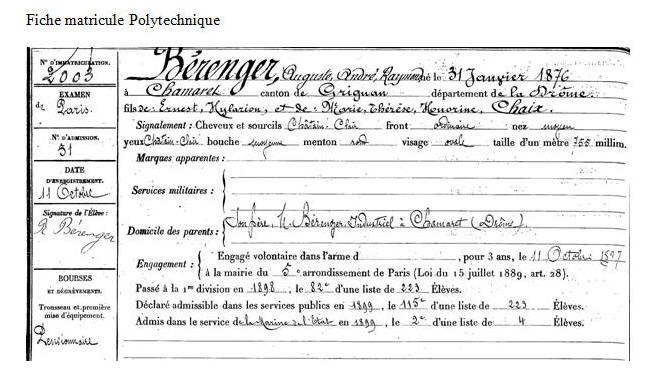 Fiche matricule Polytechnique
N° D'IMMATRICULATION.
2003
EXAMEN
de Paris.
N° D'ADMISSION.
51
DATE
D'ENREGISTREMENT.
11 Octobre
Signature de l'Élève :
R Bérenger
BOURSES
ET DÉGRÈVEMENTS.
Trousseau et première
mise d'équipement.
Pensionnaire
Bérenger, Auguste, André, Raymond né le 31 Janvier 1876
à Chamaret canton de Grignan département de la Drôme.
fils de Ernest, Hylarion, et de Marie, Thérèse, Honorine, Chaix.
Signalement : Cheveux et sourcils Châtain-Clair front ordinaire nez moyen
yeux Châtain-Clair bouche moyenne menton rond visage ovale taille d'un mètre 755 millim.
Marques apparentes :
Services militaires :
Domicile des parents : Son père, M. Bérenger Industriel à Chamaret (Drôme).
Engagement : Engagé volontaire dans l'arme d , pour 3 ans, le 11 Octobre 1897
à la mairie du 5e arrondissement de Paris (Loi du 15 juillet 1889, art. 28).
Passé à la 1re division en 1898, le 82e d'une liste de 223 Élèves.
Déclaré admissible dans les services publics en 1899, le 115e d'une liste de 223 Élèves.
Admis dans le service de la Marine de l'État en 1899, le 2e d'une liste de 4 Élèves.